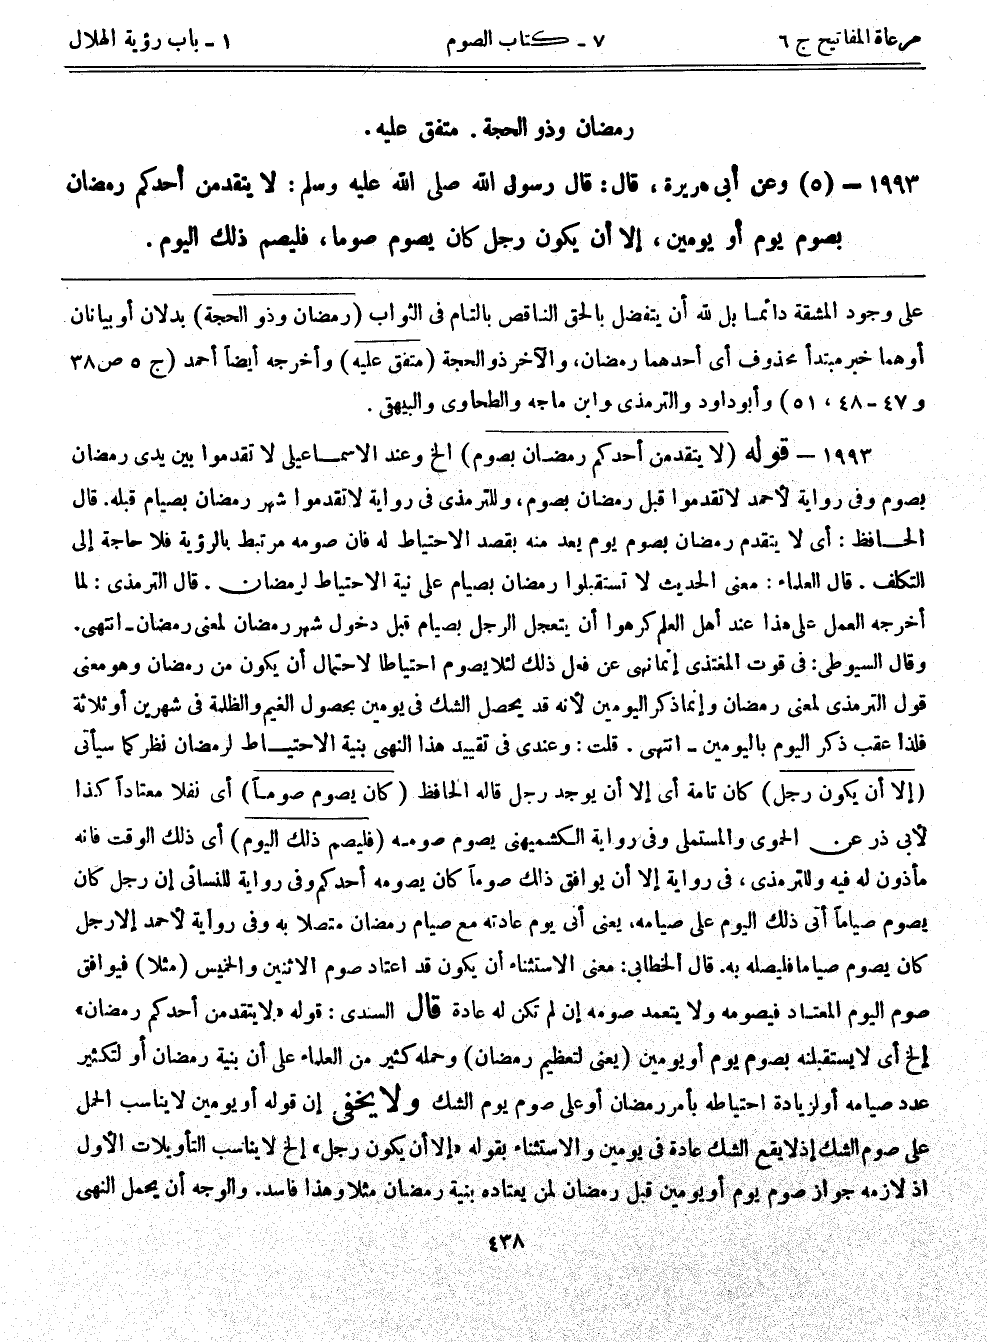 مرعاة المفاتيح ج ٦ ٧ ـ كتاب الصوم ١ ـ باب رؤية الهلال
رمضان وذو الحجة . متفق عليه .
١٩٩٣ — (٥) وعن أبى هريرة ، قال : قال رسول الله صلى الله عليه وسلم : لا يتقدمن أحدكم رمضان
بصوم يوم أو يومين ، إلا أن يكون رجل كان يصوم صوما ، فليصم ذلك اليوم .
على وجود المشقة دائما بل لله أن يتفضل بالحق الناقص بالتام فى الثواب (رمضان وذو الحجة) بدلان أو بيانان
أوهما خبر مبتدأ محذوف أى أحدهما رمضان ، والآخر ذو الحجة (متفق عليه) وأخرجه أيضاً أحمد (ج ٥ ص ٣٨
و ٤٧ ـ ٤٨ ، ٥١) وأبوداود والترمذى وابن ماجه والطحاوى والبيهقى .
١٩٩٣ — قوله (لا يتقدمن أحدكم رمضان بصوم) الخ وعند الاسماعيلى لا تقدموا بين يدى رمضان
بصوم وفى رواية لأحمد لاتقدموا قبل رمضان بصوم ، وللترمذى فى رواية لاتقدموا شهر رمضان بصيام قبله . قال
الحافظ : أى لا يتقدم رمضان بصوم يوم يعد منه بقصد الاحتياط له فان صومه مرتبط بالرؤية فلا حاجة إلى
التكلف . قال العلماء : معنى الحديث لا تستقبلوا رمضان بصيام على نية الاحتياط لرمضان . قال الترمذى : لما
أخرجه العمل على هذا عند أهل العلم كرهوا أن يتعجل الرجل بصيام قبل دخول شهر رمضان لمعنى رمضان ـ انتهى .
وقال السيوطى : فى قوت المغتذى إنما نهى عن فعل ذلك لئلا يصوم احتياطا لاحتمال أن يكون من رمضان وهو معنى
قول الترمذى لمعنى رمضان وإنما ذكر اليومين لأنه قد يحصل الشك فى يومين بحصول الغيم والظلمة فى شهرين أو ثلاثة
فلذا عقب ذكر اليوم باليومين ـ انتهى . قلت : وعندى فى تقييد هذا النهى بنية الاحتياط لرمضان نظر كما سيأتى
(إلا أن يكون رجل) كان تامة أى إلا أن يوجد رجل قاله الحافظ (كان يصوم صوماً) أى نفلا معتاداً كذا
لأبى ذر عن الحموى والمستملى وفى رواية الكشميهنى يصوم صومه (فليصم ذلك اليوم) أى ذلك الوقت فانه
مأذون له فيه وللترمذى ، فى رواية إلا أن يوافق ذلك صوماً كان يصومه أحدكم وفى رواية للنسائى إن رجل كان
يصوم صياماً أتى ذلك اليوم على صيامه ، يعنى أتى يوم عادته مع صيام رمضان متصلا به وفى رواية لأحمد إلارجل
كان يصوم صياما فليصله به . قال الخطابى : معنى الاستثناء أن يكون قد اعتاد صوم الاثنين والخميس (مثلا) فيوافق
صوم اليوم المعتاد فيصومه ولا يتعمد صومه إن لم تكن له عادة قال السندى : قوله «لايتقدمن أحدكم رمضان»
إلخ أى لا يستقبلنه بصوم يوم أويومين (يعنى لتعظيم رمضان) وحمله كثير من العلماء على أن بنية رمضان أو لتكثير
عدد صيامه أولزيادة احتياطه بأمر رمضان أو على صوم يوم الشك ولا يخفى إن قوله أويومين لايناسب الحمل
على صوم الشك إذ لايقع الشك عادة فى يومين والاستثناء بقوله «إلا أن يكون رجل» إلخ لايناسب التأويلات الأول
اذ لازمه جواز صوم يوم أويومين قبل رمضان لمن يعتاده بنية رمضان مثلا وهذا فاسد . والوجه أن يحمل النهى
٤٣٨